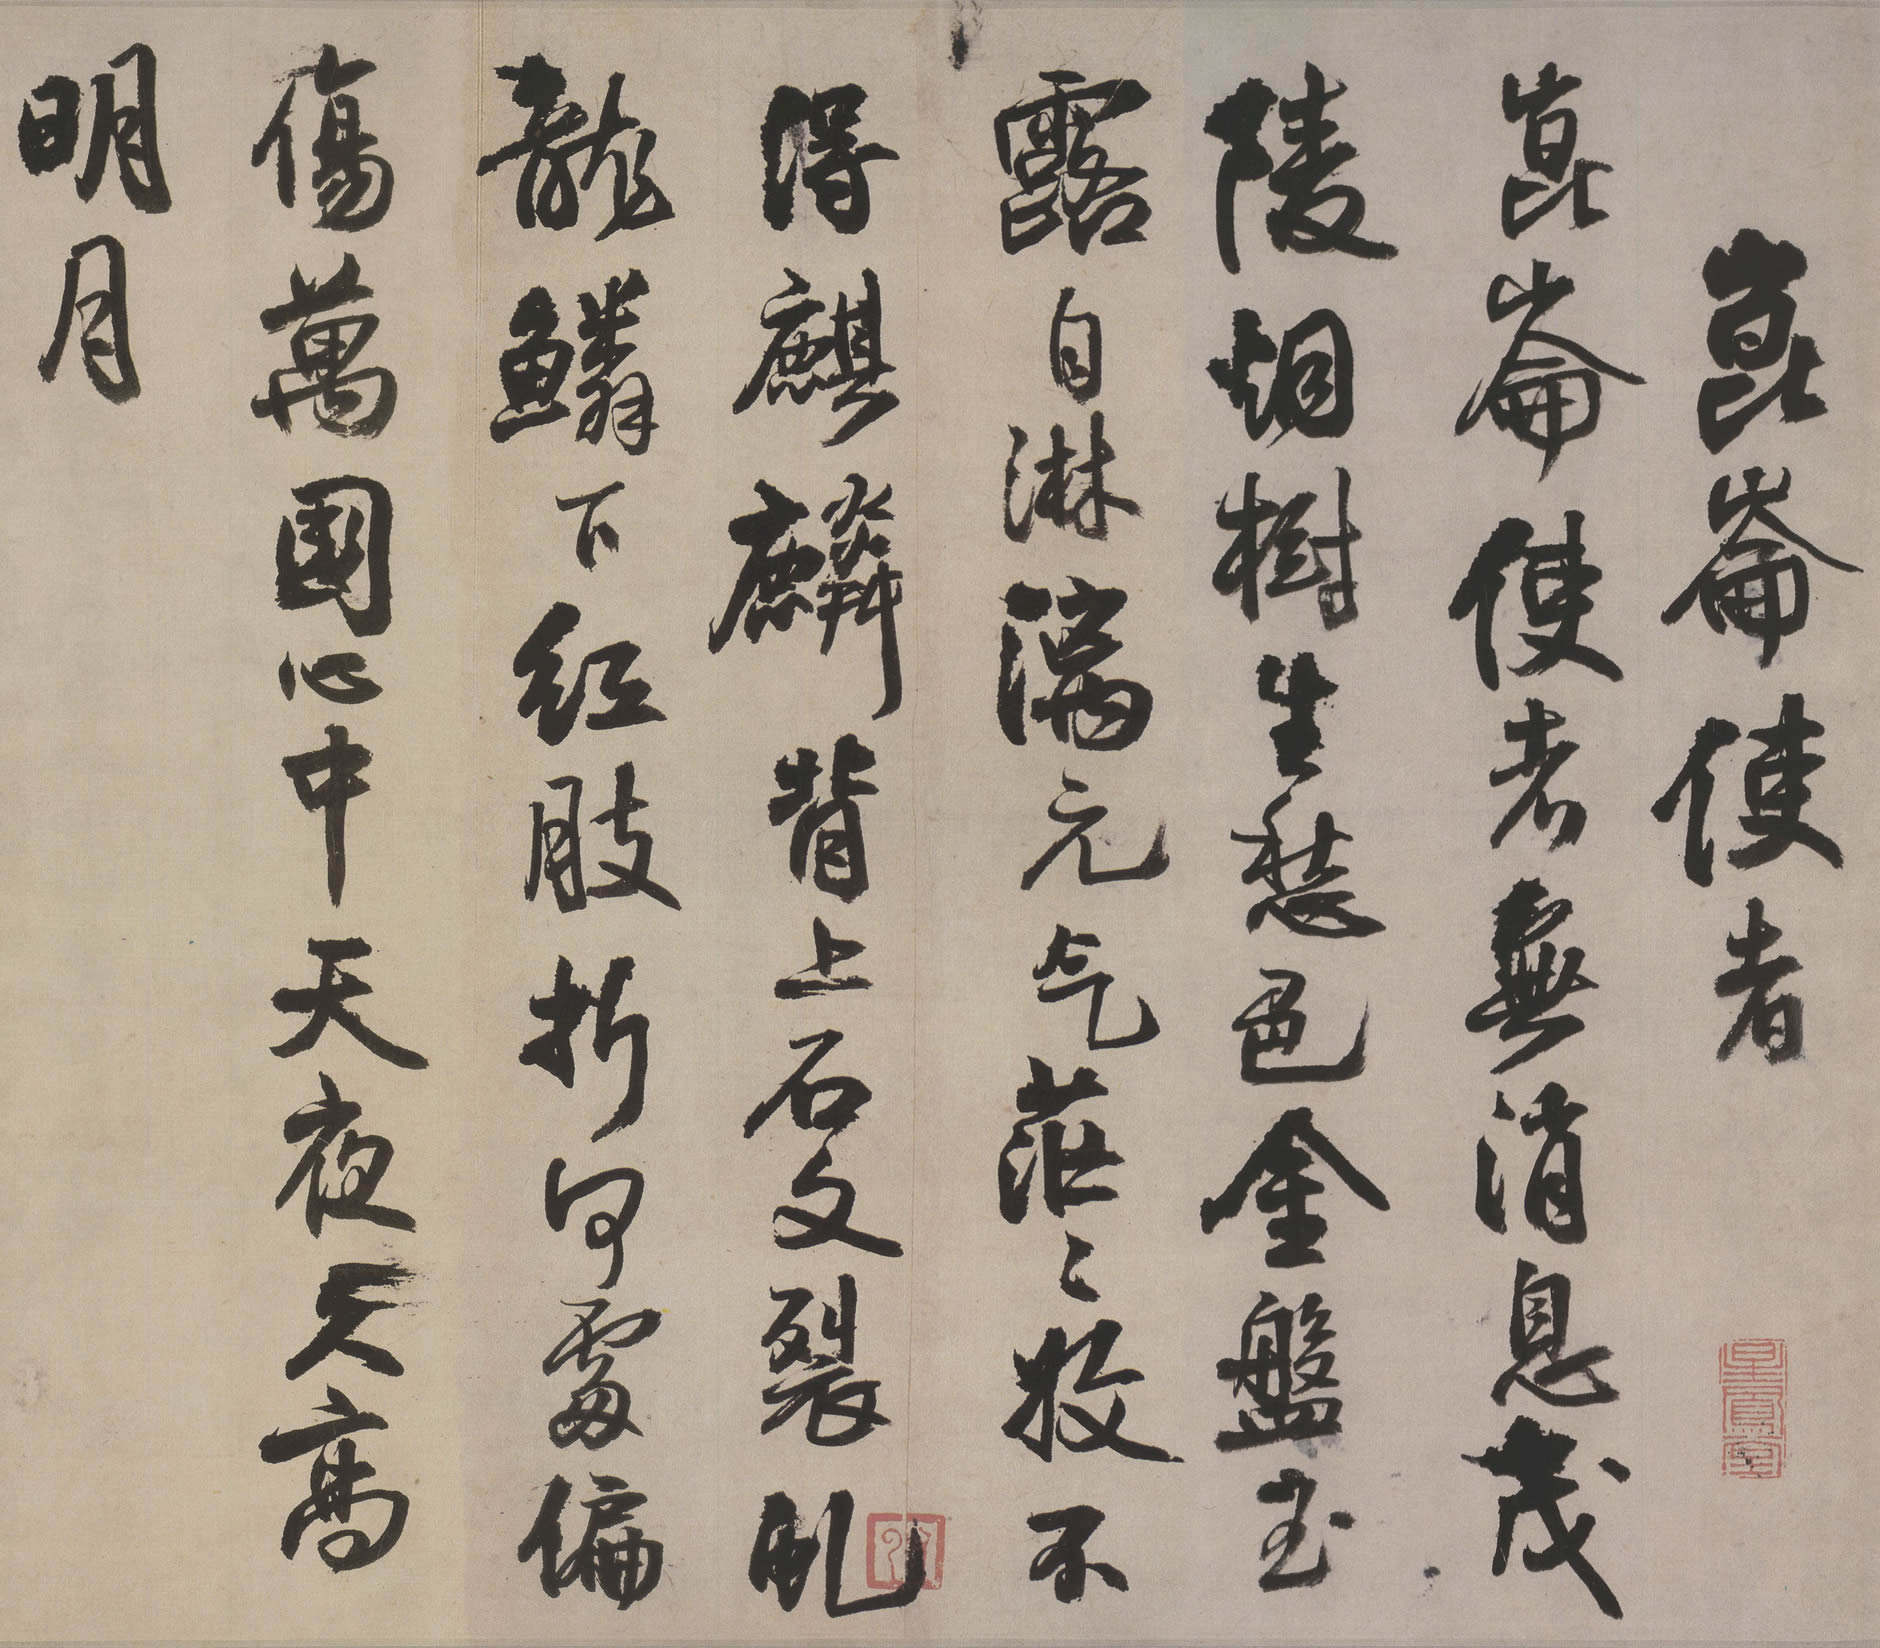 崑崙使者
崑崙使者無消息茂
陵烟樹生愁色金盤玉
露自淋漓元气茫〻收不
得麒麟背上石文裂虬
龍鱗下红肢折何處偏
傷萬國心中天夜久高
明月